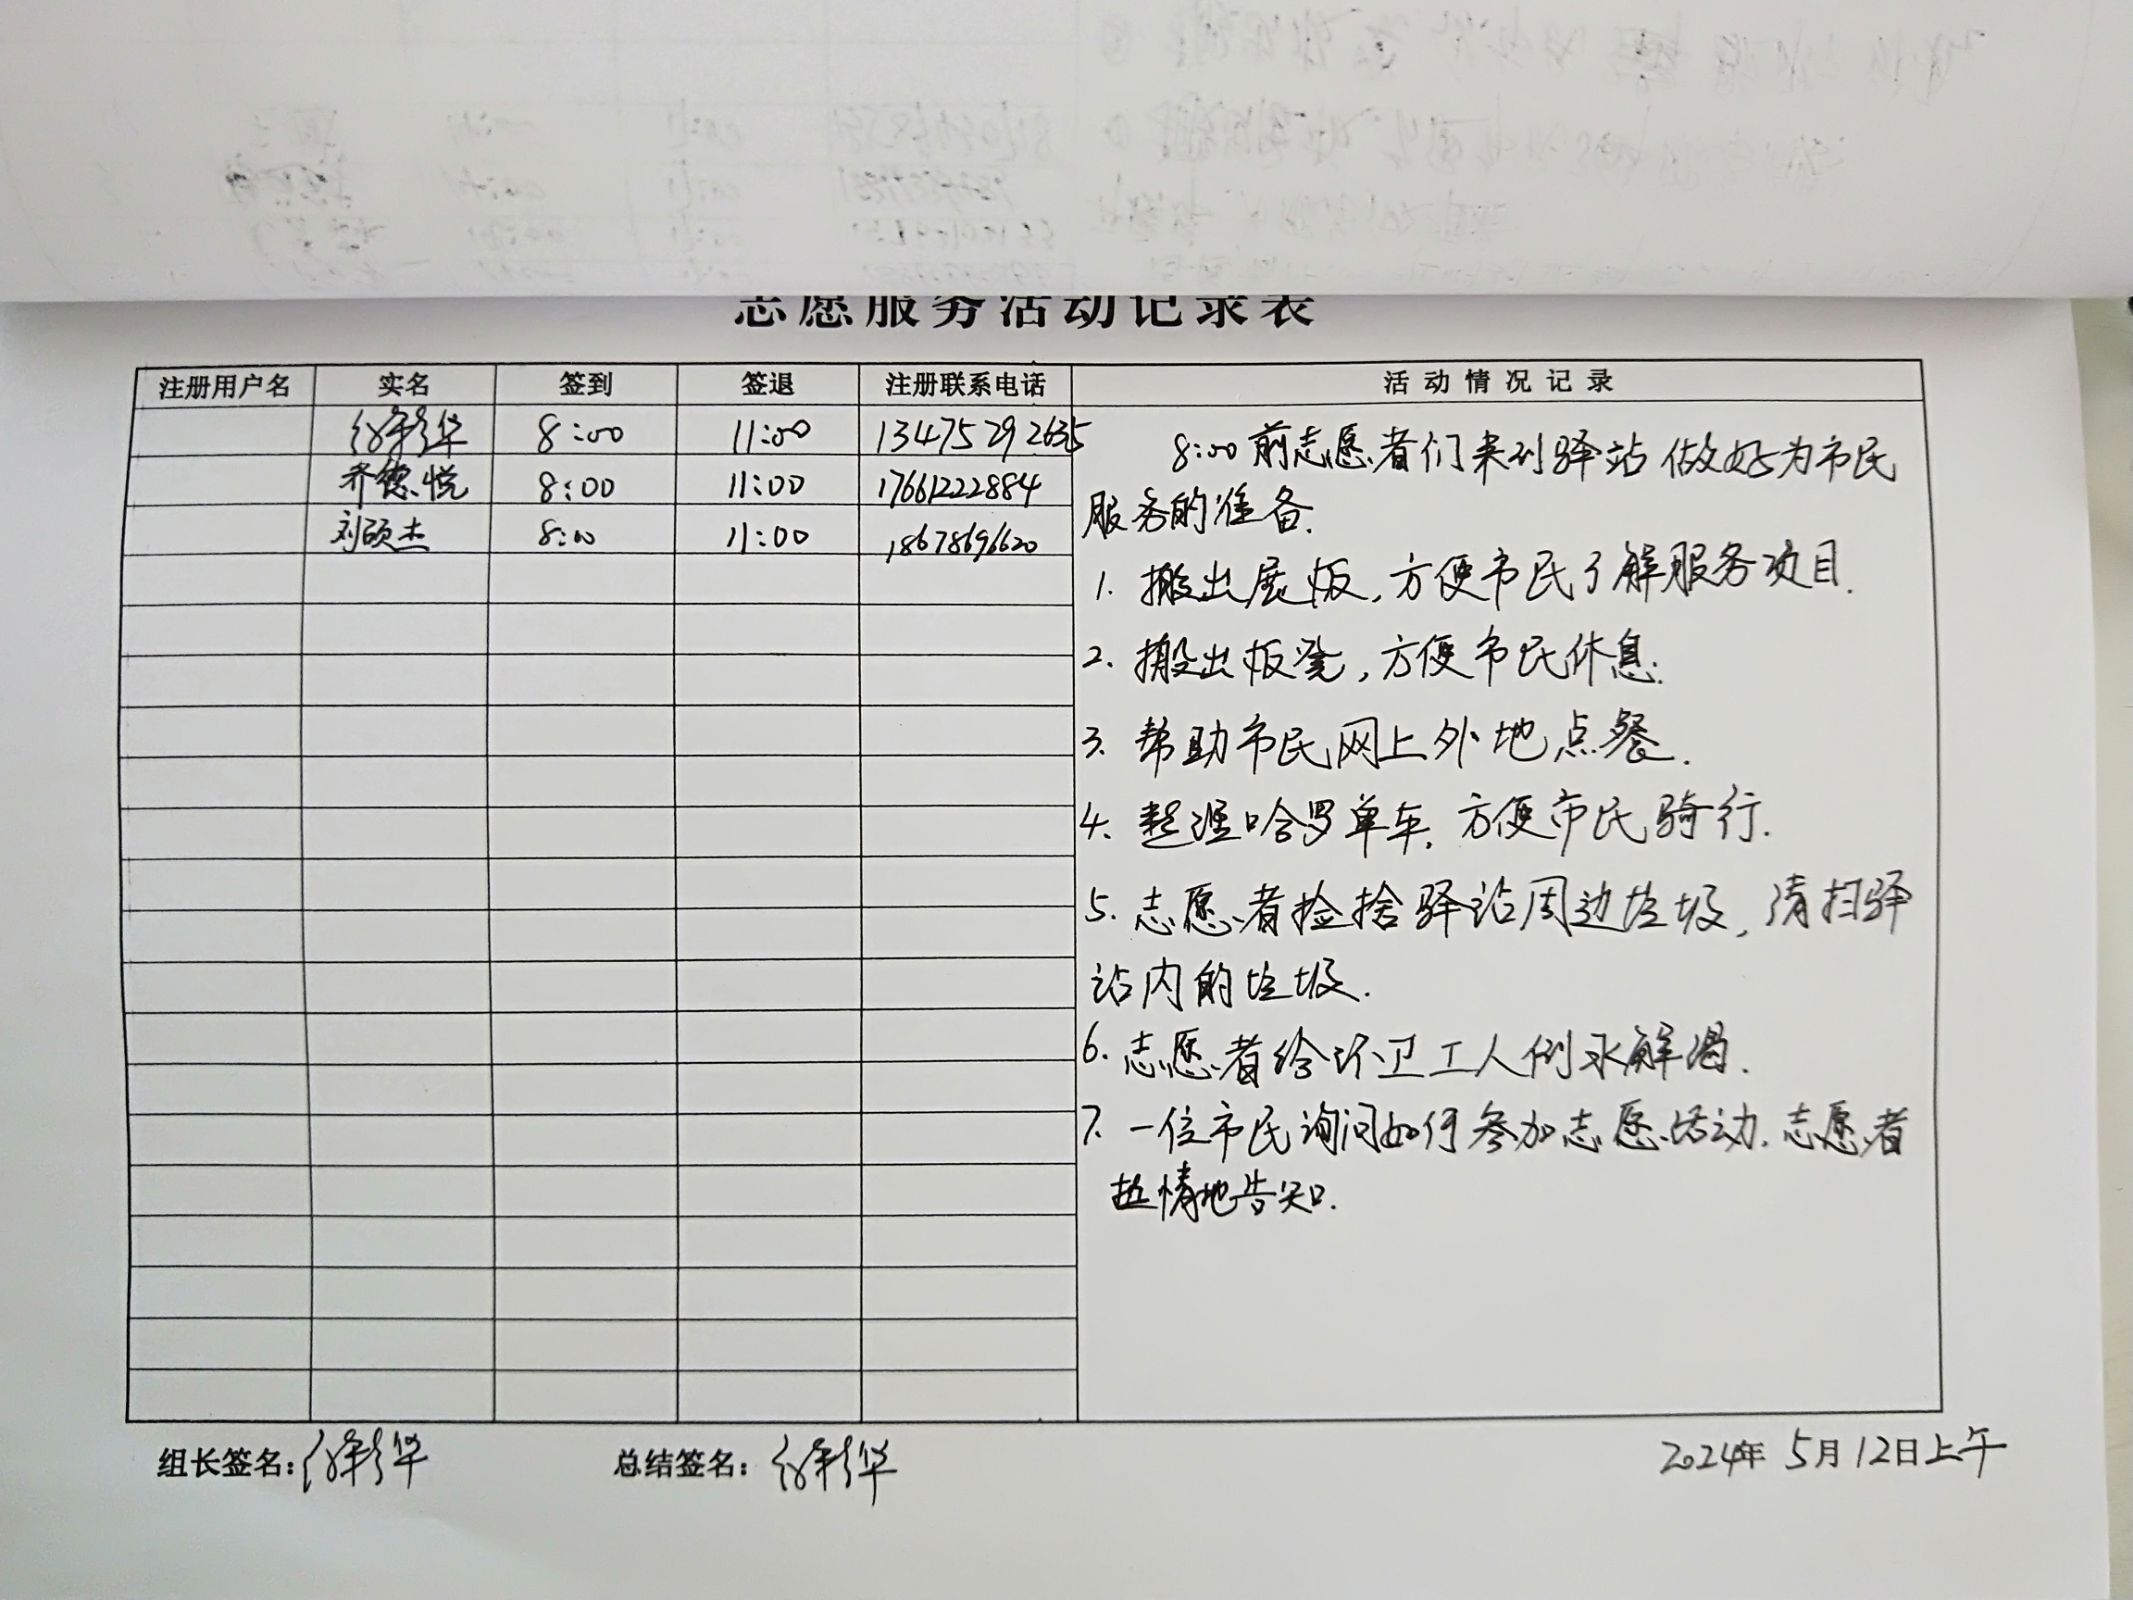 志愿服务活动记录表
注册用户名 实名 签到 签退 注册联系电话 活动情况记录
徐彩华 8:00 11:00 13475292635
齐德悦 8:00 11:00 17661222884
刘硕杰 8:00 11:00 18678696620
8:00前志愿者们来到驿站做好为市民
服务的准备.
1. 搬出展板,方便市民了解服务项目.
2. 搬出板凳,方便市民休息.
3. 帮助市民网上外地点餐.
4. 整理哈罗单车.方便市民骑行.
5. 志愿者捡拾驿站周边垃圾,清扫驿
站内的垃圾.
6. 志愿者给环卫工人倒水解渴.
7. 一位市民询问如何参加志愿活动.志愿者
热情地告知.
组长签名:徐彩华 总结签名:徐彩华 2024年5月12日上午